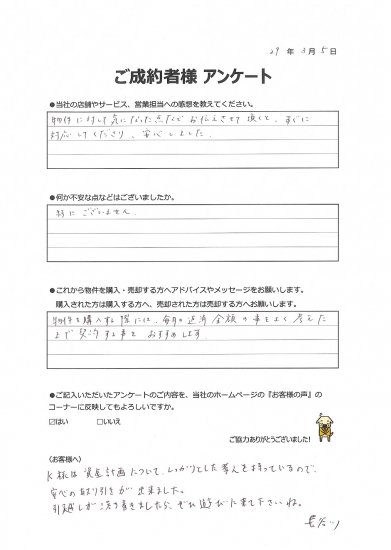 29 年 3 月 5 日
ご成約者様 アンケート
●当社の店舗やサービス、営業担当への感想を教えてください。
物件に対して気になった点などお伝えさせて頂くと、すぐに
対応してくださり、安心しました。
●何か不安な点などはございましたか。
特にございません。
●これから物件を購入・売却する方へアドバイスやメッセージをお願いします。
購入された方は購入する方へ、売却された方は売却する方へお願いします。
物件を購入する際には、毎月の返済金額の事をよく考えた
上で契約する事をおすすめします
●ご記入いただいたアンケートのご内容を、当社のホームページの『お客様の声』の
コーナーに反映してもよろしいですか。
☑はい □いいえ
ご協力ありがとうございました!
《お客様へ》
K様は資金計画について、しっかりとした考えを持っているので、
安心の取り引きが出来ました。
引越しが落ち着きましたら、ぜひ遊びに来て下さいね。
長谷川